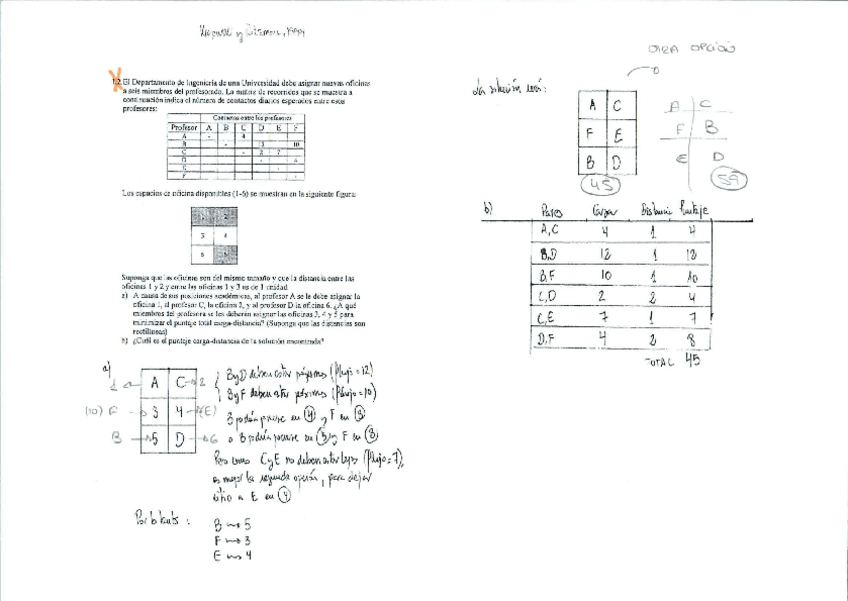 1.2 El Departamento de Ingeniería de una Universidad debe asignar nuevas oficinas
a seis miembros del profesorado. La matriz de recorridos que se muestra a
continuación indica el número de contactos diarios esperados entre estos
profesores:
Contactos entre los profesores
Profesor A B C D E F
A - 4
B - 10
C - 2 7
D - 4
E -
F -
Los espacios de oficina disponibles (1-6) se muestran en la siguiente figura:
1 2
3 4
5 6
Suponga que las oficinas son del mismo tamaño y que la distancia entre las
oficinas 1 y 2 y entre las oficinas 1 y 3 es de 1 unidad
a) A causa de sus posiciones académicas, al profesor A se le debe asignar la
oficina 1, al profesor C, la oficina 2, y al profesor D la oficina 6. ¿A qué
miembros del profesorado se les deberán asignar las oficinas 3, 4 y 5 para
minimizar el puntaje total carga-distancia? (Suponga que las distancias son
rectilíneas)
b) ¿Cuál es el puntaje carga-distancia de la solución encontrada?
a)
1 A C 2
(10) F 3 4 (E)
B 5 D 6
B y D deben estar próximos (flujo = 12)
B y F deben estar próximos (flujo = 10)
B podría ponerse en 4 y F en 3
o B podría ponerse en 5 y F en 3
Pero como C y E no deben estar lejos (flujo = 7),
es mejor la segunda opción, para dejar
sitio a E en 4
Por lo tanto:
B 5
F 3
E 4
OTRA OPCIÓN
La solución será:
A C
F E
B D
45
A C
F B
E D
59
b) Pares Cargas Distancia Puntaje
A,C 4 1 4
B,D 12 1 12
B,F 10 1 10
C,D 2 2 4
C,E 7 1 7
D,F 4 2 8
TOTAL 45